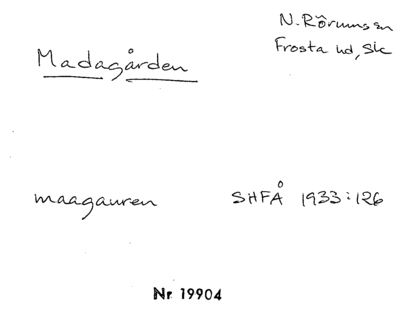 N. Rörumss n
Frosta hd, Sk
Madagården
maagauren SHFÅ 1933:126
Nr 19904